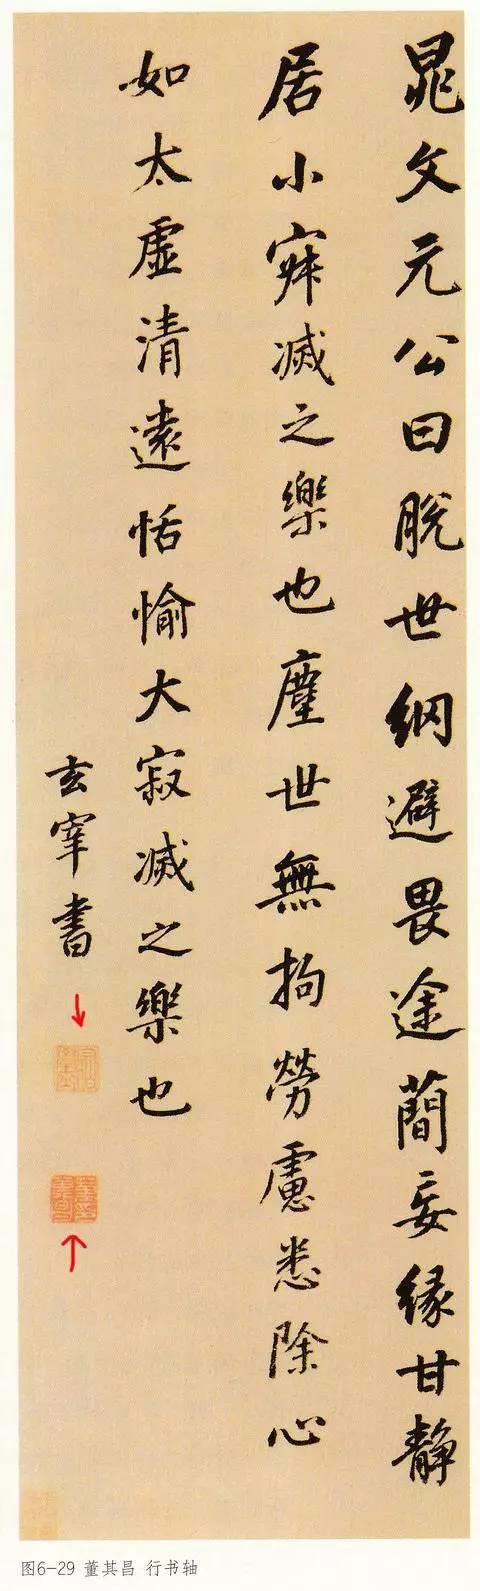 晁文元公曰脱世網避畏途簡妄緣甘静
居小寂滅之樂也塵世無拘勞慮悉除心
如太虛清遠恬愉大寂滅之樂也
玄宰書
图6-29 董其昌 行书轴